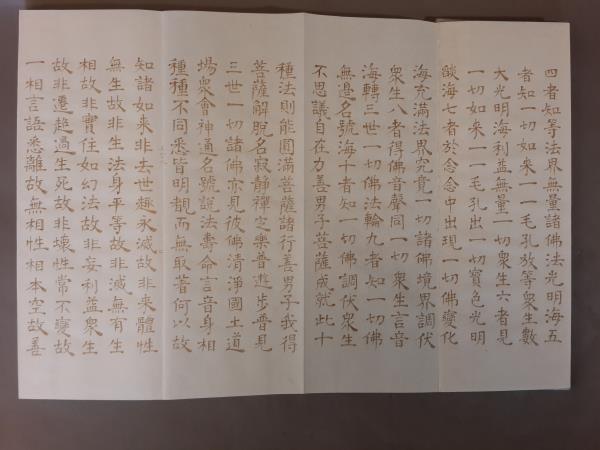 四者知等法界無量諸佛法光明海五
者知一切如来一一毛孔放等衆生數
大光明海利益無量一切衆生六者見
一切如来一一毛孔出一切寶色光明
燄海七者於念念中出現一切佛變化
海充滿法界究竟一切諸佛境界調伏
衆生八者得佛音聲同一切衆生言音
海轉三世一切佛法輪九者知一切佛
無邊名號海十者知一切佛調伏衆生
不思議自在力善男子菩薩成就此十
種法則能圓滿菩薩諸行善男子我得
菩薩解脫名寂靜禪定樂普遊步普見
三世一切諸佛亦見彼佛清淨國土道
場衆會神通名號說法壽命言音身相
種種不同悉皆明覩而無取著何以故
知諸如来非去世趣永滅故非来體性
無生故非生法身平等故非滅無有生
相故非實住如幻法故非妄利益衆生
故非遷超過生死故非壞性常不變故
一相言語悉離故無相性相本空故善